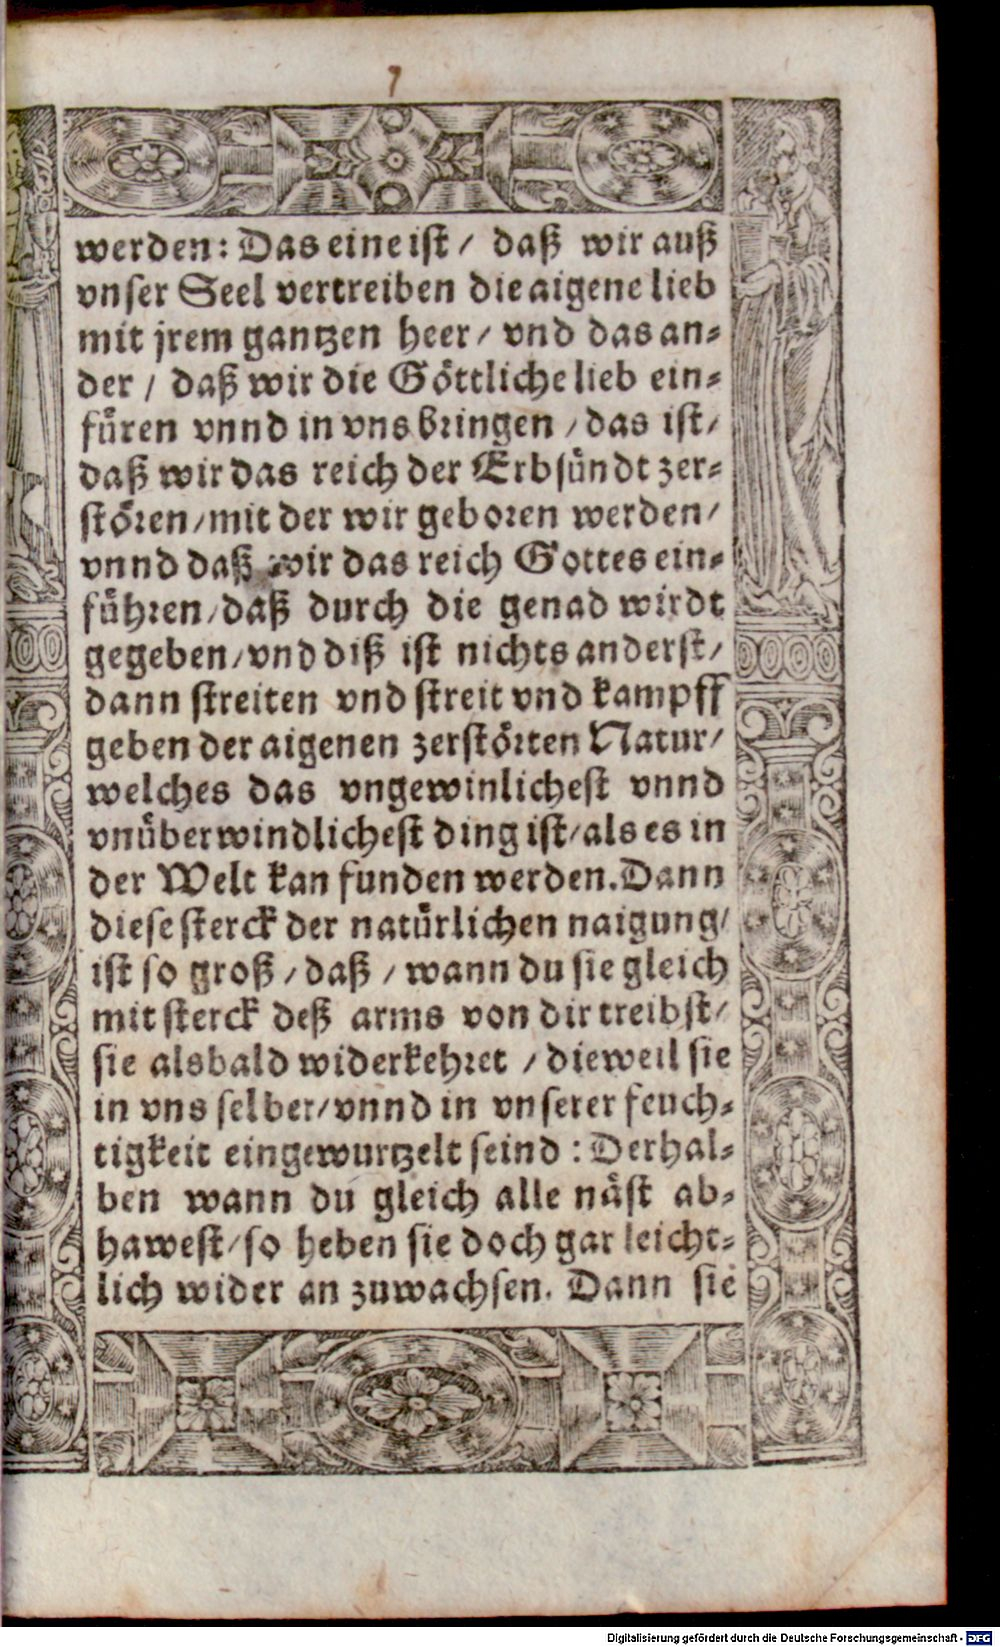 7
werden: Das eine ist / daß wir auß
vnser Seel vertreiben die aigene lieb
mit jrem gantzen heer / vnd das an-
der / daß wir die Göttliche lieb ein-
füren vnnd in vns bringen / das ist /
daß wir das reich der Erbsündt zer-
stören / mit der wir geboren werden /
vnnd daß wir das reich Gottes ein-
führen / daß durch die genad wirdt
gegeben / vnd diß ist nichts anderst /
dann streiten vnd streit vnd kampff
geben der aigenen zerstörten Natur /
welches das vngewinlichest vnnd
vnüberwindlichest ding ist / als es in
der Welt kan funden werden. Dann
diese sterck der natürlichen naigung /
ist so groß / daß / wann du sie gleich
mit sterck deß arms von dir treibst /
sie alsbald widerkehret / dieweil sie
in vns selber / vnnd in vnserer feuch-
tigkeit eingewurtzelt seind: Derhal-
ben wann du gleich alle näst ab-
hawest / so heben sie doch gar leicht-
lich wider an zuwachsen. Dann sie
Digitalisierung gefördert durch die Deutsche Forschungsgemeinschaft - DFG